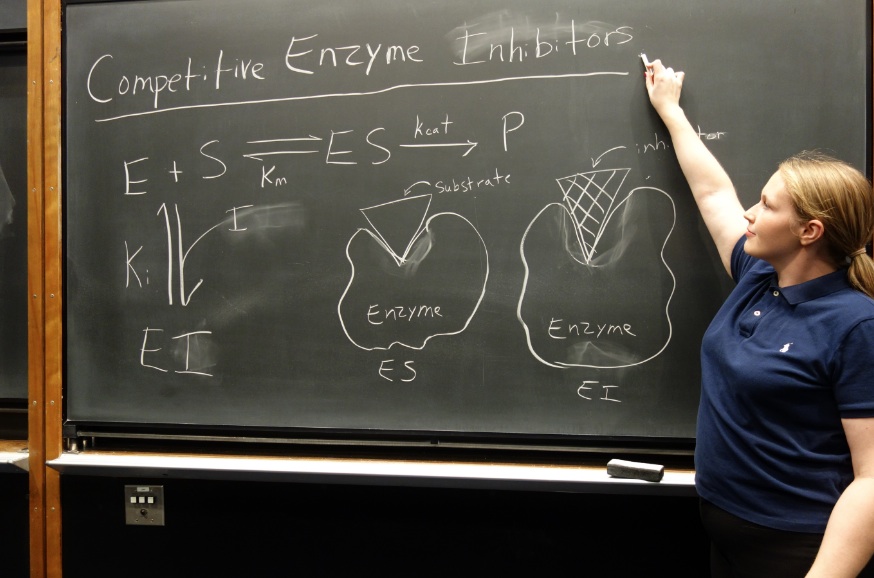 Competitive Enzyme Inhibitors
E + S ⇌ ES → P
kcat
Km
Ki
I
EI
substrate
Enzyme
ES
Enzyme
EI